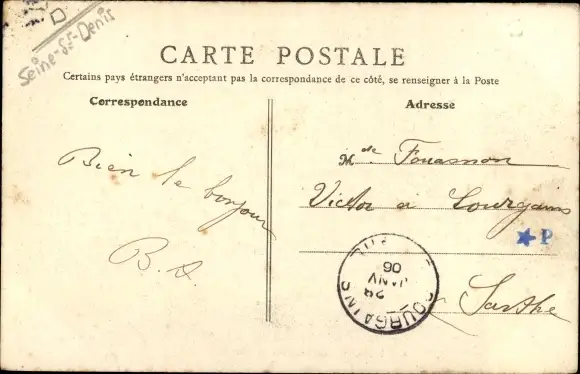 Seine-St-Denis
CARTE POSTALE
Certains pays étrangers n'acceptant pas la correspondance de ce côté, se renseigner à la Poste
Correspondance
Adresse
Bien le bonjour
B. D.
Mde. Fouassnon
Victor à Courgains
Sarthe
COURGAINS
28
JANV
06
P